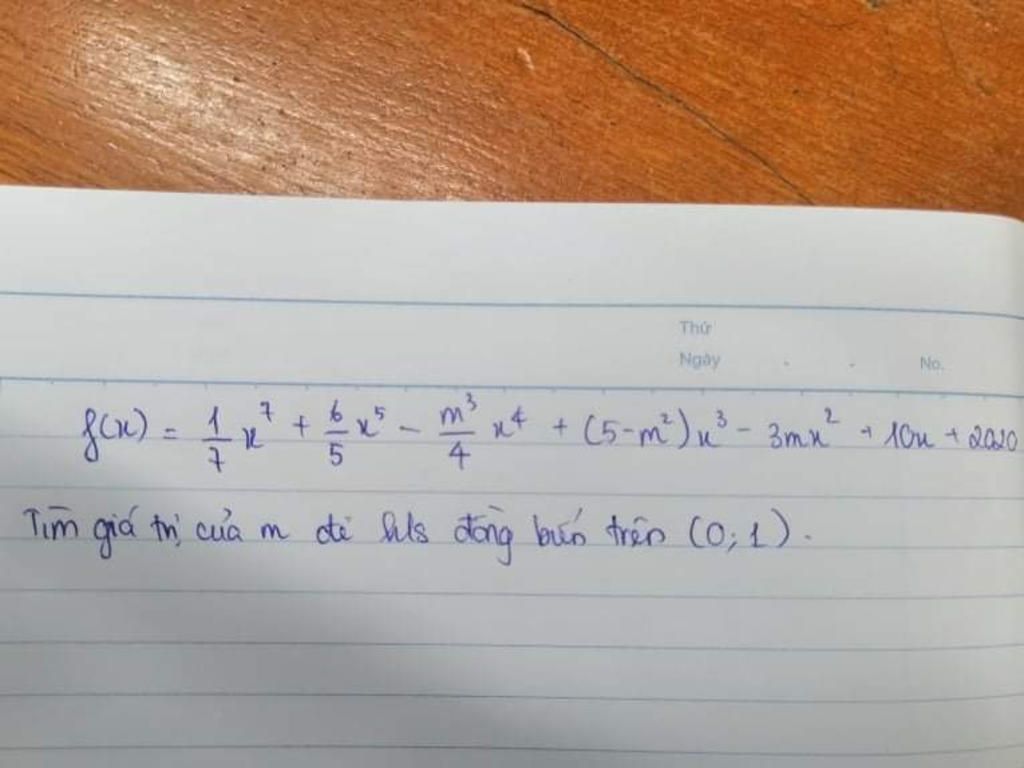 Thứ
Ngày . . No.
f(x) = 1/7 x⁷ + 6/5 x⁵ - m³/4 x⁴ + (5-m²)x³ - 3mx² + 10x + 2020
Tìm giá trị của m để h/s đồng biến trên (0;1).